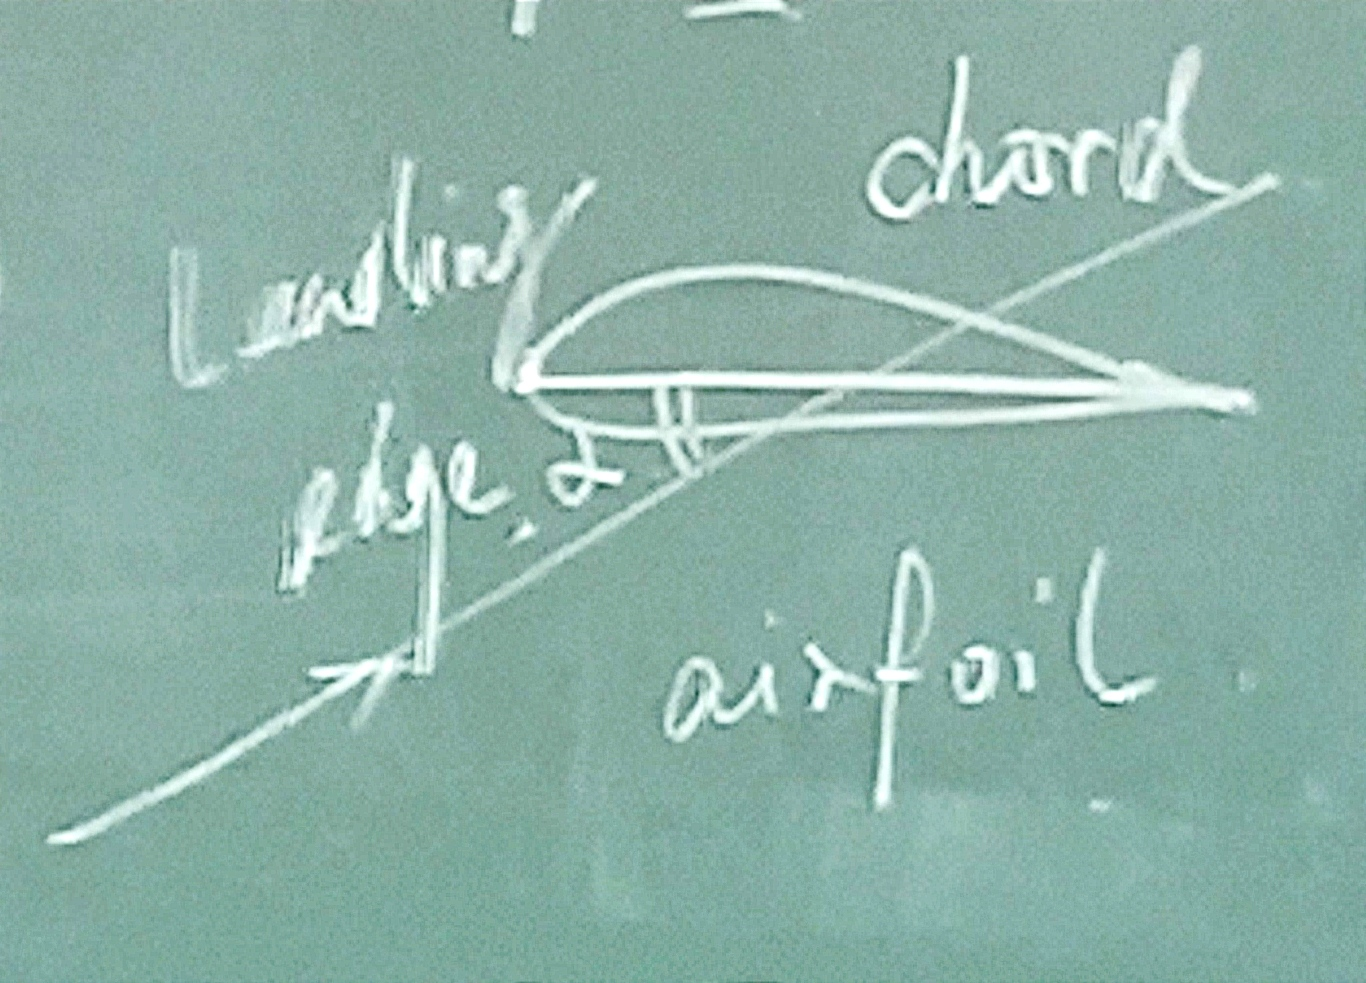 chord
Leading
edge.
α
airfoil.